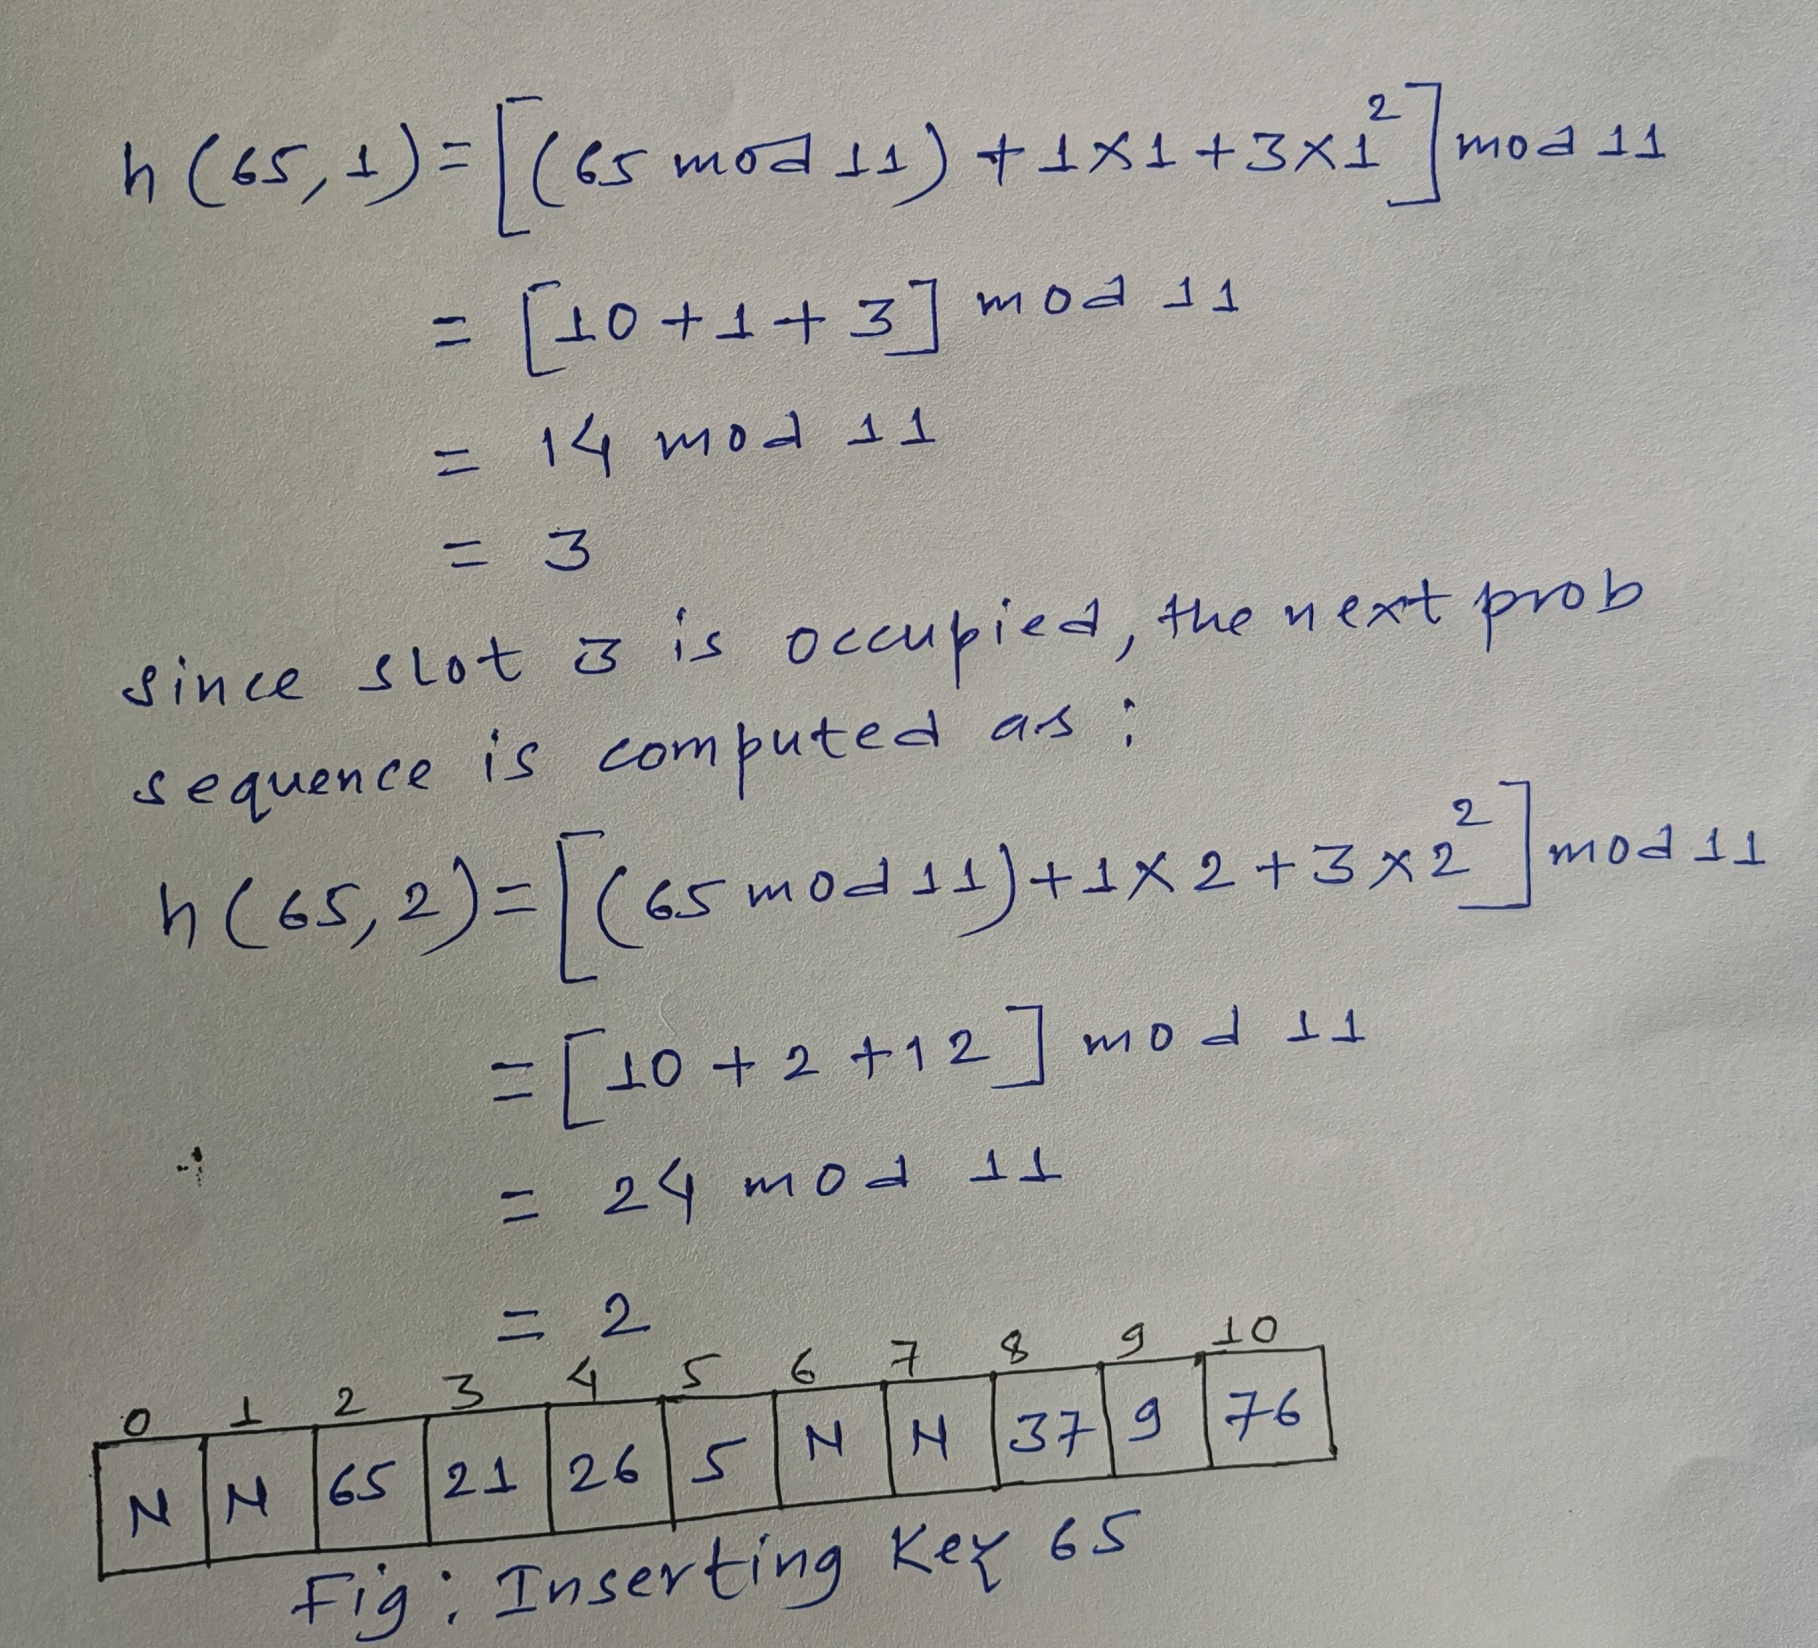 h(65,1)=[(65 mod 11)+1×1+3×1²] mod 11
= [10+1+3] mod 11
= 14 mod 11
= 3
since slot 3 is occupied, the next prob
sequence is computed as :
h(65,2)=[(65 mod 11)+1×2+3×2²] mod 11
=[10+2+12] mod 11
= 24 mod 11
= 2
0 1 2 3 4 5 6 7 8 9 10
N N 65 21 26 5 N N 37 9 76
Fig: Inserting Key 65